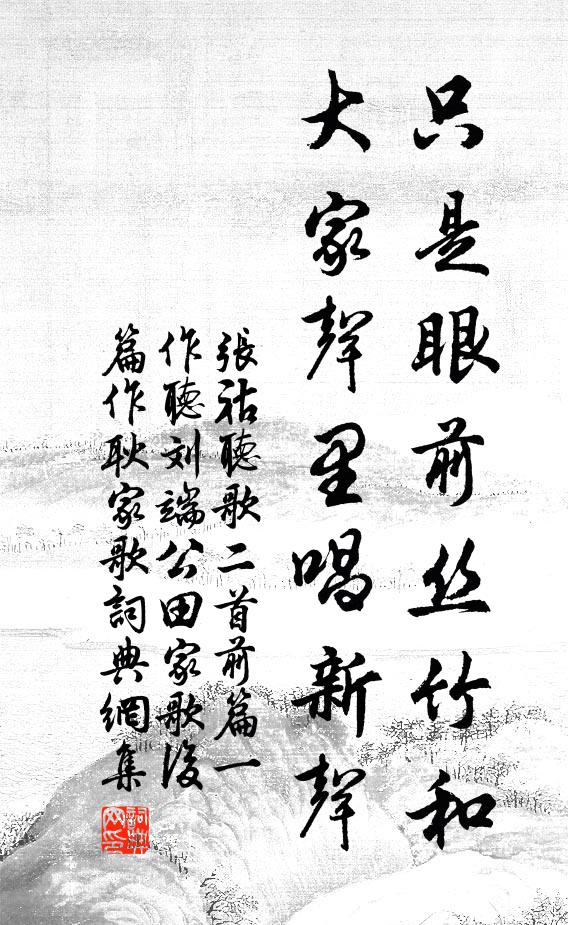 只是眼前丝竹和
大家聲里唱新聲
張祜聽歌二首前篇一
作聽刘端公田家歌後
篇作耿家歌詞典網集
詞典網印